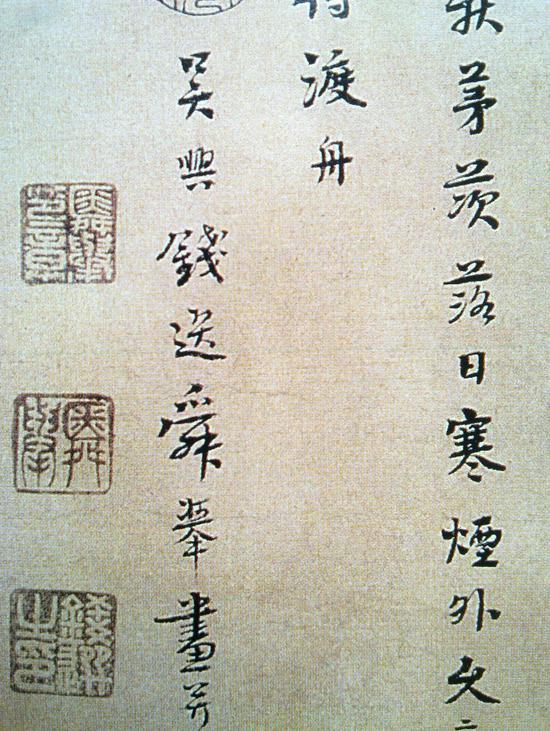 秋茅茨落日寒煙外久
待渡舟
吳興錢選舜舉畫并